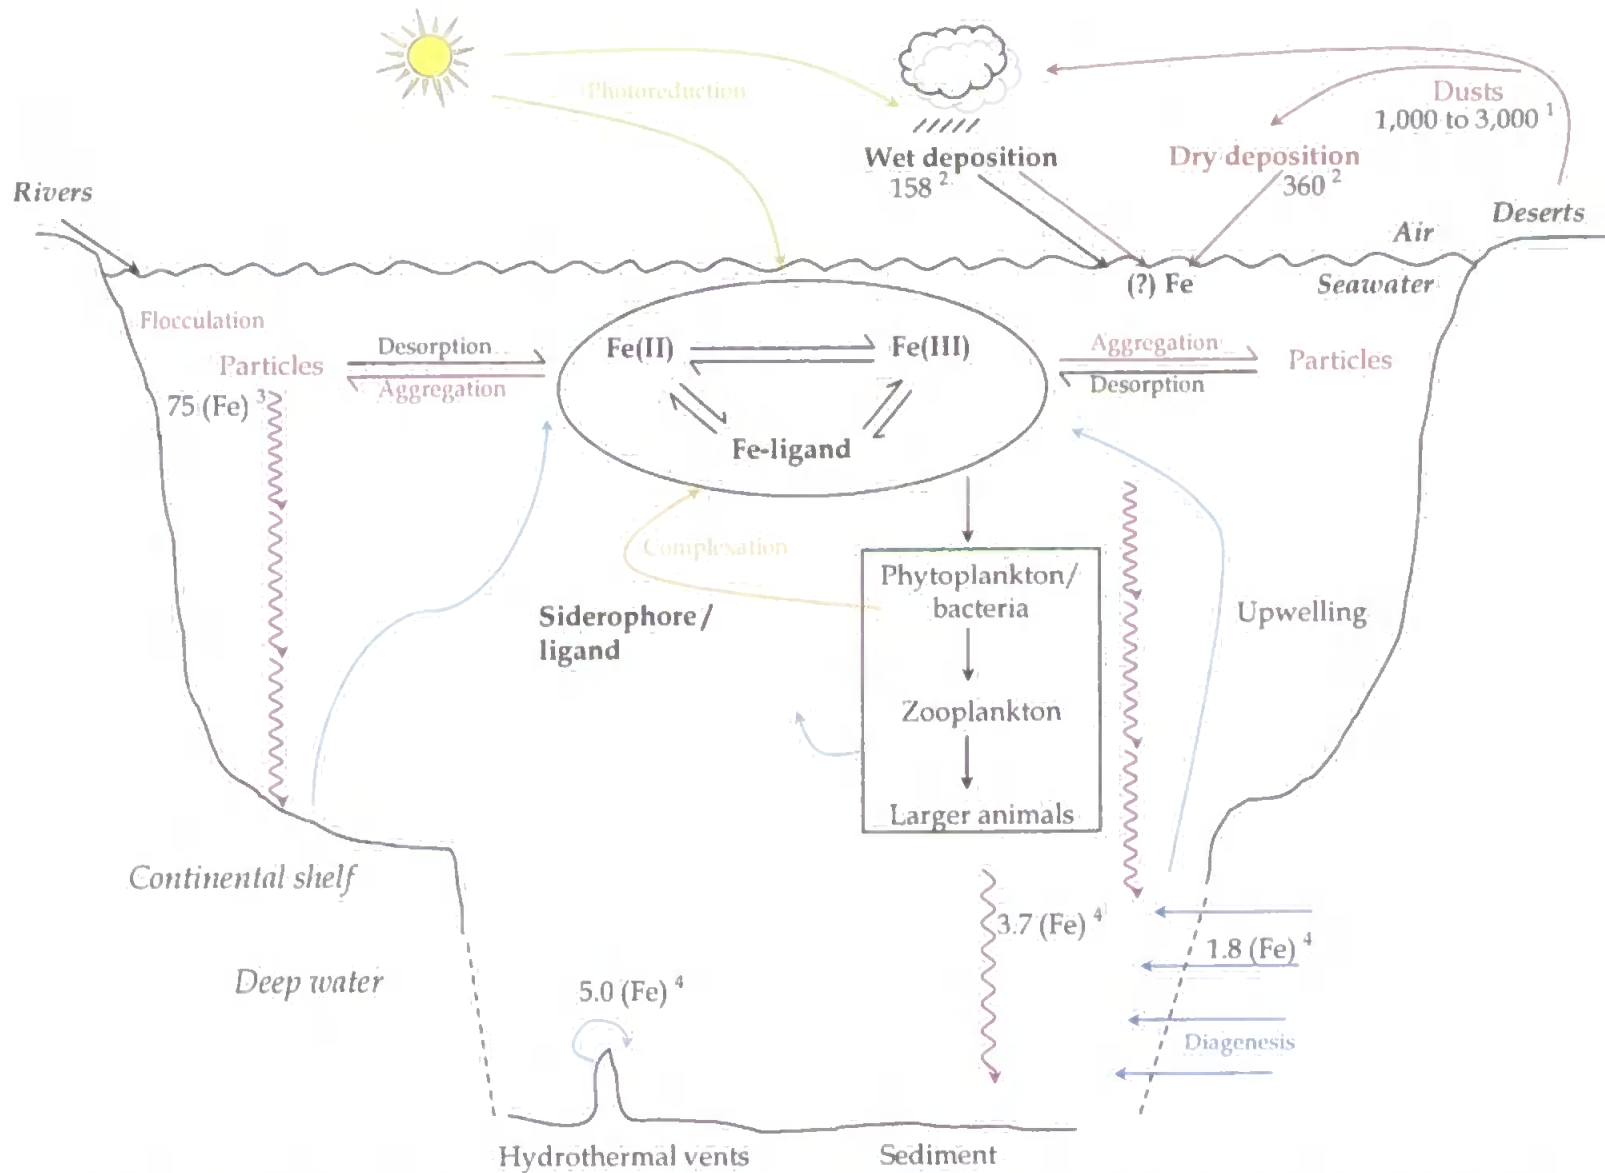 Photoreduction
Dusts
1,000 to 3,000 1
Wet deposition
158 2
Dry deposition
360 2
Rivers
Deserts
Air
(?) Fe
Seawater
Flocculation
Particles
Desorption
Aggregation
Fe(II)
Fe(III)
Fe-ligand
Aggregation
Desorption
Particles
75 (Fe) 3
Complexation
Siderophore/
ligand
Phytoplankton/
bacteria
Zooplankton
Larger animals
Upwelling
Continental shelf
Deep water
3.7 (Fe) 4
1.8 (Fe) 4
5.0 (Fe) 4
Diagenesis
Hydrothermal vents
Sediment